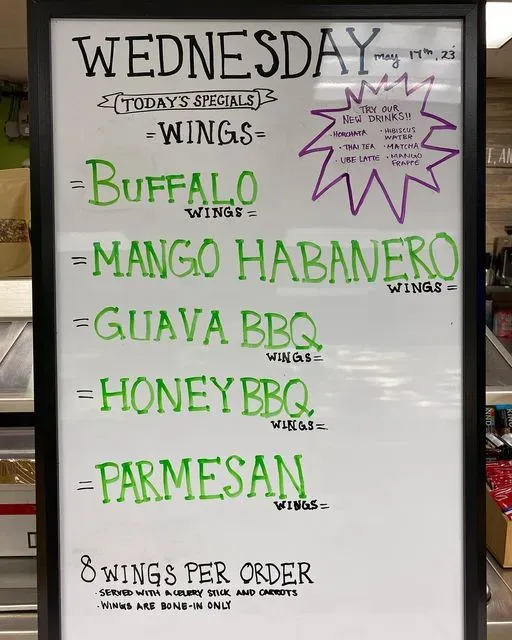 WEDNESDAY may 17th, 23'
TODAY'S SPECIALS
=WINGS=
TRY OUR
NEW DRINKS!!
•HORCHATA •HIBISCUS
WATER
•THAI TEA •MATCHA
•UBE LATTE •MANGO
FRAPPE
=BUFFALO
WINGS=
=MANGO HABANERO
WINGS=
=GUAVA BBQ
WINGS=
=HONEY BBQ
WINGS=
=PARMESAN
WINGS=
8 WINGS PER ORDER
•SERVED WITH A CELERY STICK AND CARROTS
•WINGS ARE BONE-IN ONLY